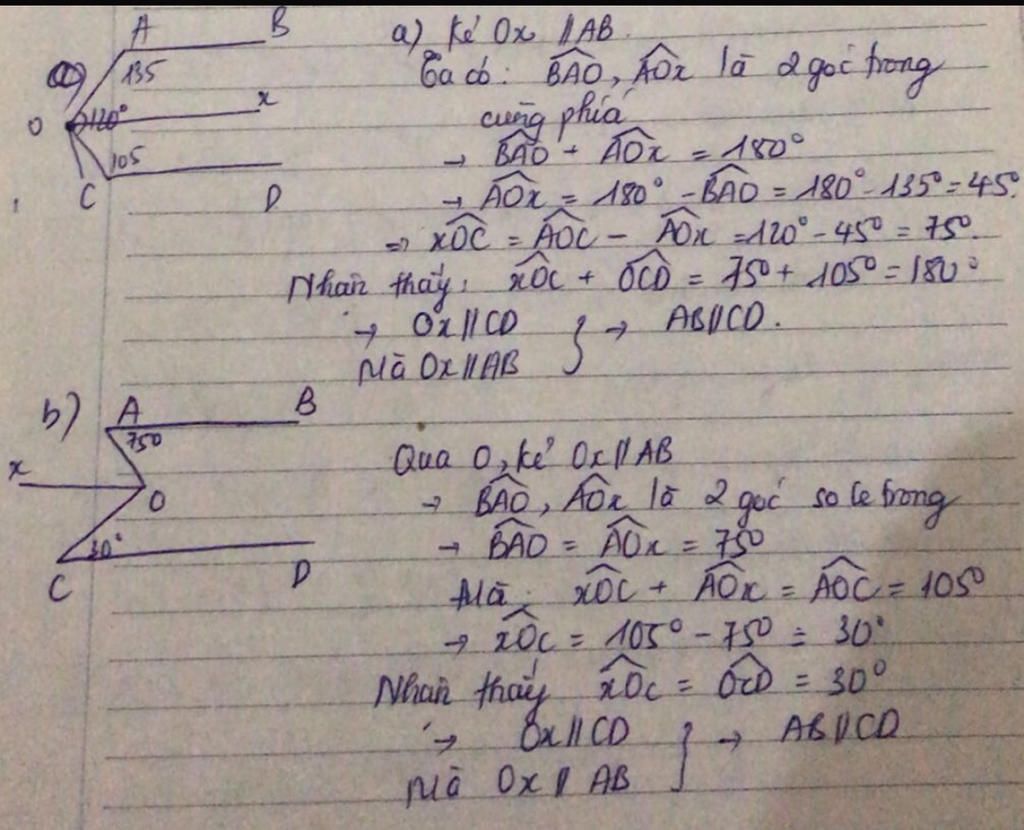 a)
A B
135
x
O 120°
105
C D
a) Kẻ Ox // AB.
Ta có: BAO, AOx là 2 góc trong
cùng phía
→ BAO + AOx = 180°
→ AOx = 180° - BAO = 180° - 135° = 45°.
=> xOC = AOC - AOx = 120° - 45° = 75°.
Nhận thấy: xOC + OCD = 75° + 105° = 180°
→ Ox // CD } → AB // CD.
Mà Ox // AB
b) A B
75°
x
O
30°
C D
Qua O, kẻ Ox // AB
→ BAO, AOx là 2 góc so le trong
→ BAO = AOx = 75°
Mà: xOC + AOx = AOC = 105°
→ xOC = 105° - 75° = 30°
Nhận thấy xOC = OCD = 30°
→ Ox // CD } → AB // CD
Mà Ox // AB